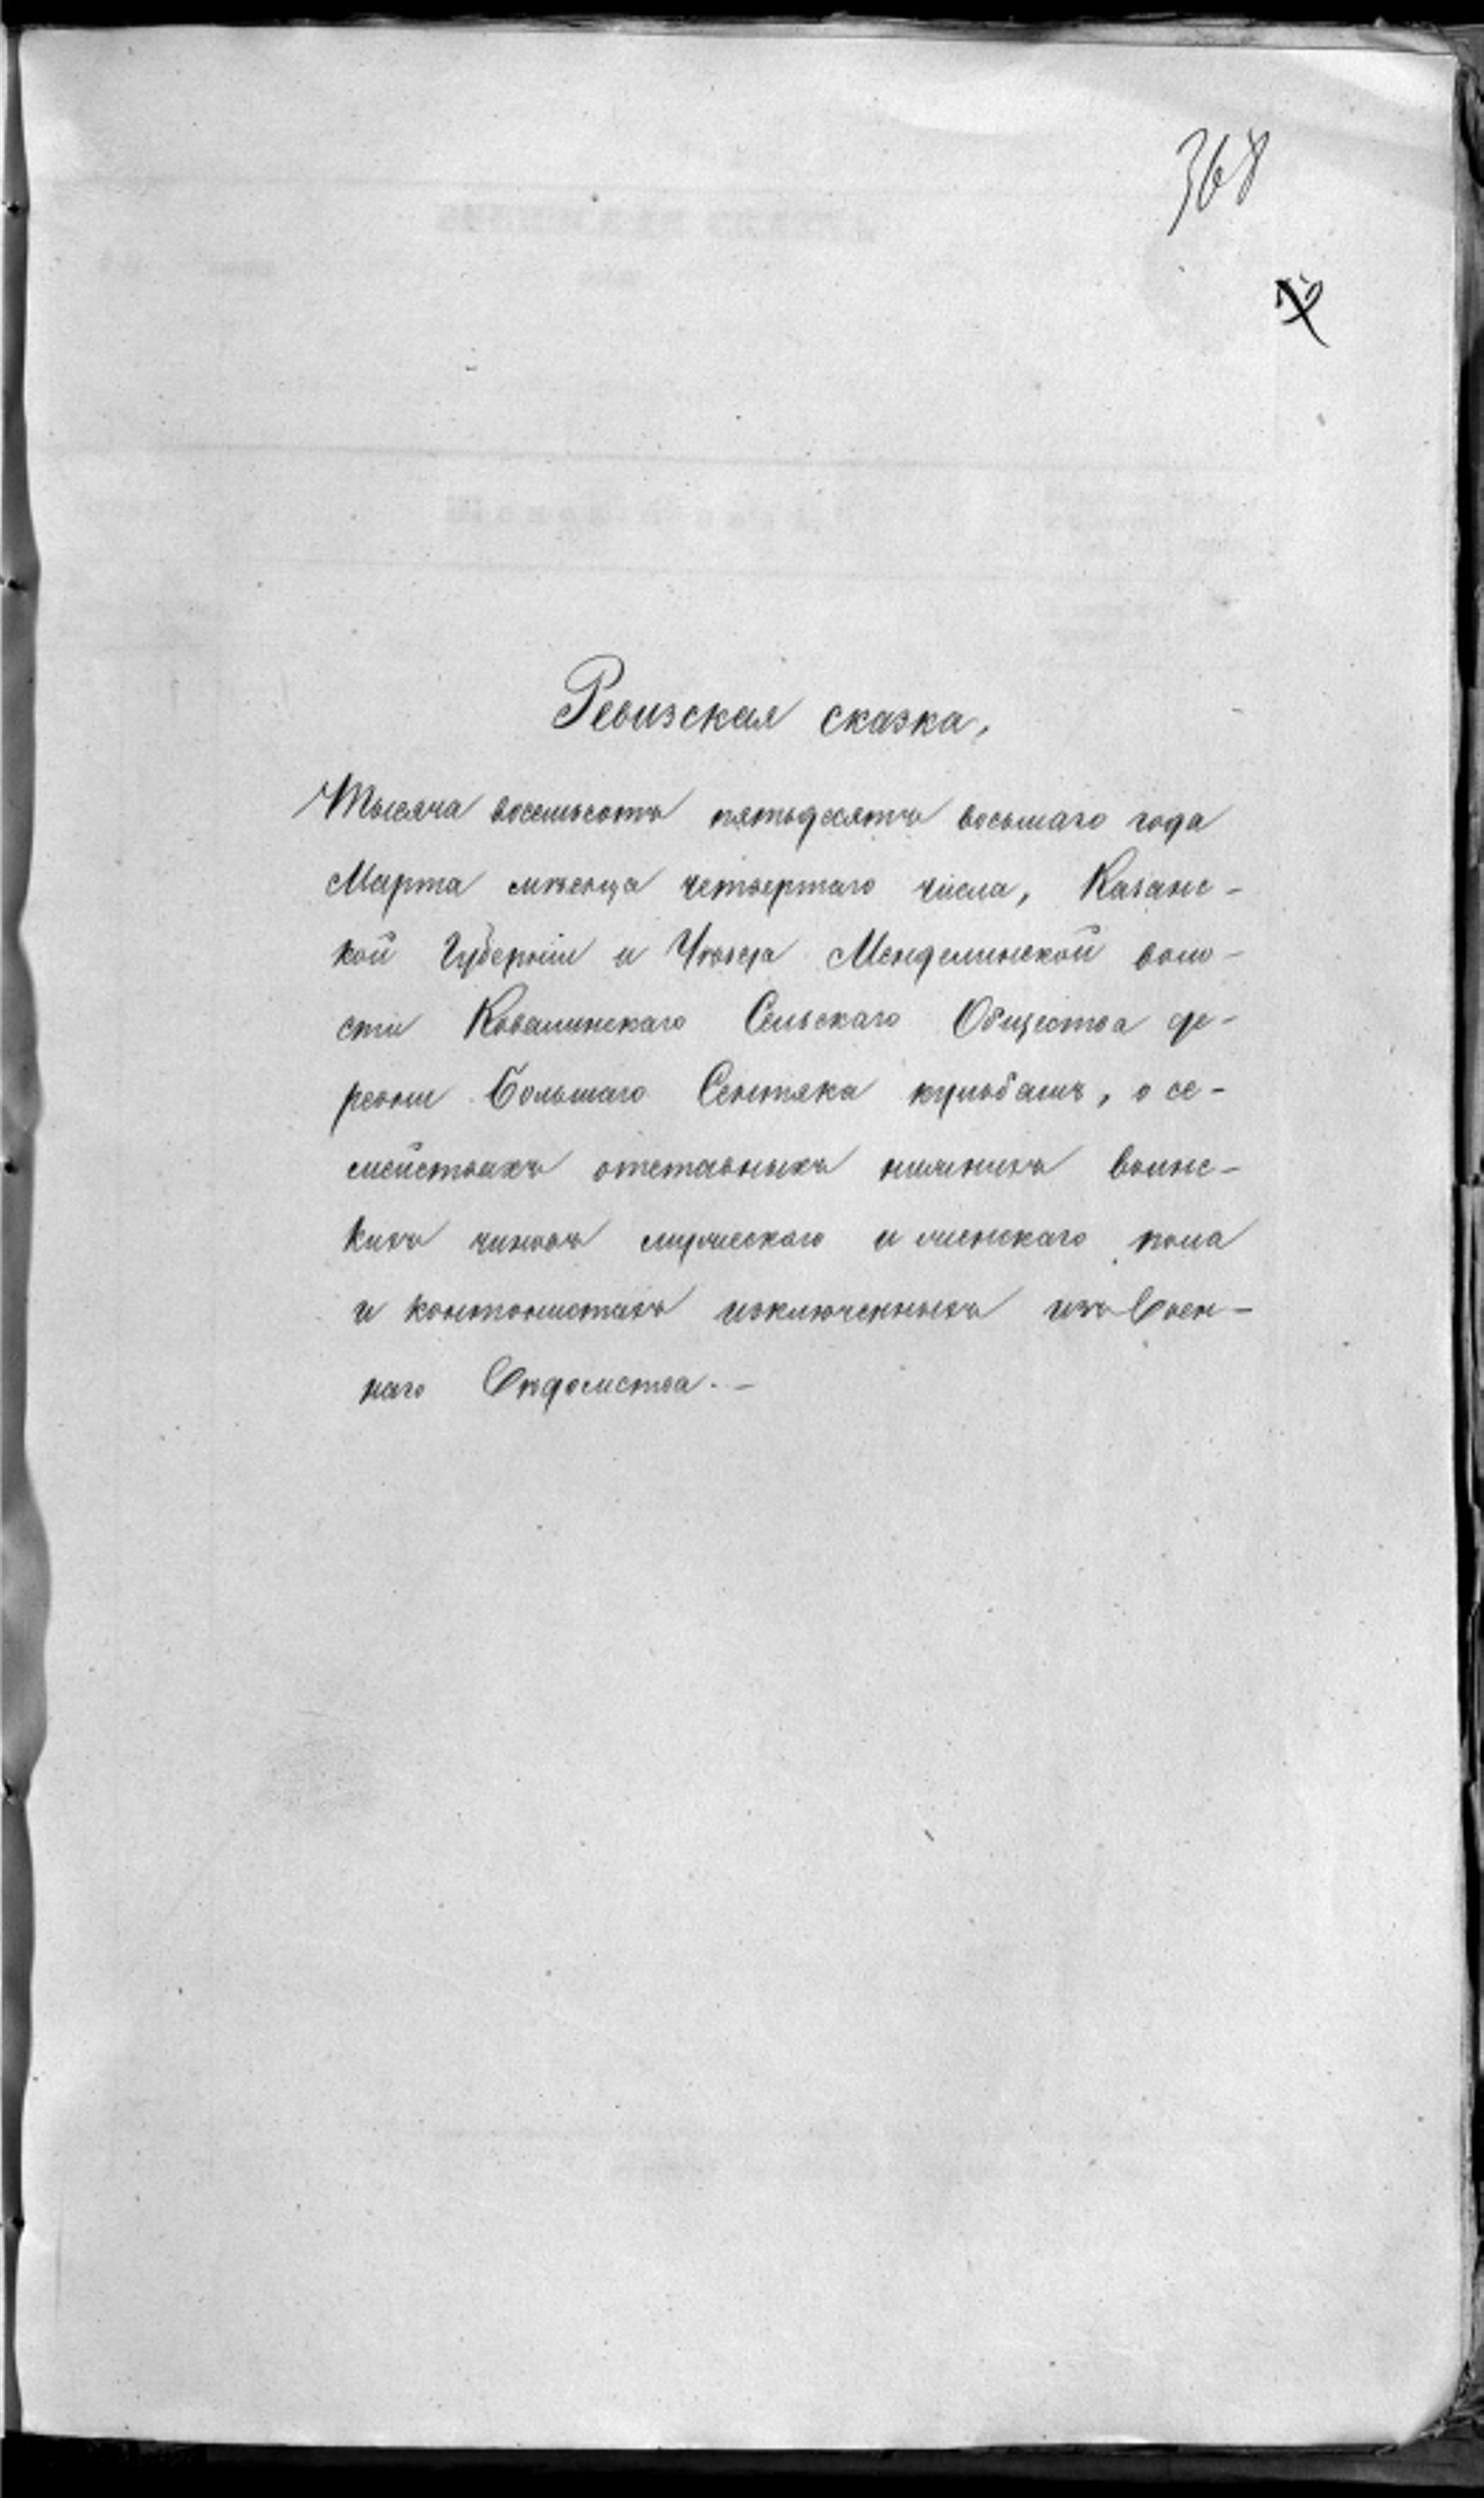 368
Ревизская сказка,
Тысяча восемьсотъ пятьдесятъ восьмаго года
Марта мѣсяца четвертаго числа, Казанс-
кой Губерніи и Уѣзда Менделинской воло-
сти Ковалинскаго Сельскаго Общества де-
ревни Большаго Сентяка кульбашъ, о се-
мействахъ отставныхъ нижнихъ воинс-
кихъ чиновъ мужескаго и женскаго пола
и контонистахъ изключенныхъ изъ Воен-
наго Вѣдомства. -